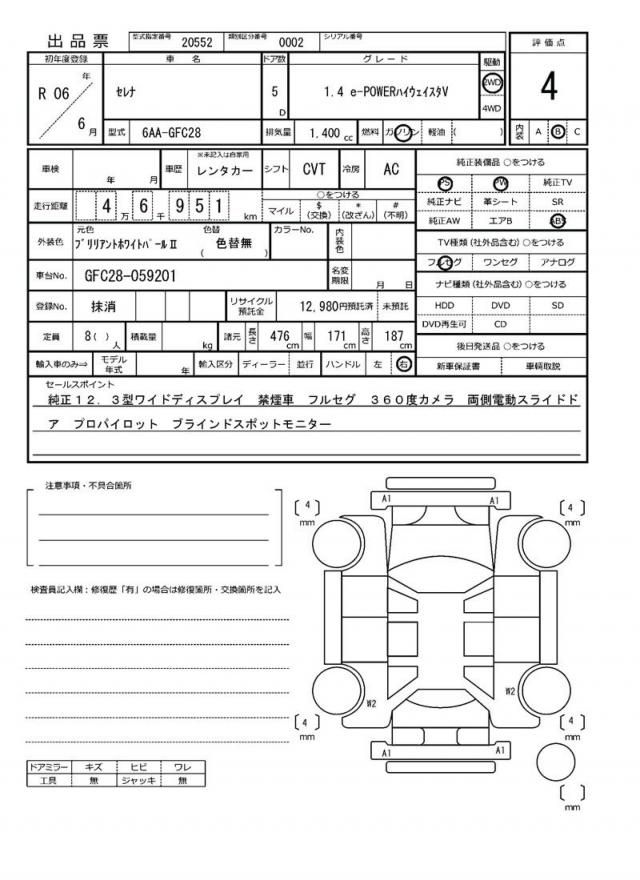 出品票 型式指定番号 20552 類別区分番号 0002 シリアル番号
評価点
初年度登録 車名 ドア数 グレード 駆動
R 06 年 セレナ 5 D 1.4 e-POWERﾊｲｳｪｲｽﾀV 2WD 4
6 月 4WD
型式 6AA-GFC28 排気量 1,400 cc 燃料 ガソリン 軽油 ( ) 内装 A B C
車検 年 月 車歴 ※未記入は自家用 レンタカー シフト CVT 冷房 AC
純正装備品 ○をつける
PS PW 純正TV
純正ナビ 革シート SR
純正AW エアB ABS
走行距離 4 万 6 千 9 5 1 km ○をつける
マイル $ (交換) * (改ざん) # (不明)
外装色 元色 ﾌﾞﾘﾘｱﾝﾄﾎﾜｲﾄﾊﾟｰﾙⅡ 色替 ( 色替無 ) カラーNo. 内装色
TV種類 (社外品含む) ○をつける
フルセグ ワンセグ アナログ
車台No. GFC28-059201 名変期限 月 日
ナビ種類 (社外品含む) ○をつける
HDD DVD SD
DVD再生可 CD
登録No. 抹消 リサイクル預託金 12,980円預託済 未預託
定員 8( ) 人 積載量 kg 諸元 長さ 476 cm 幅 171 cm 高さ 187 cm
後日発送品 ○をつける
新車保証書 車輌取説
輸入車のみ⇨ モデル年式 年 輸入区分 ディーラー 並行 ハンドル 左 右
セールスポイント
純正12．3型ワイドディスプレイ 禁煙車 フルセグ 360度カメラ 両側電動スライドド
ア プロパイロット ブラインドスポットモニター
注意事項・不具合箇所
検査員記入欄：修復歴「有」の場合は修復箇所・交換箇所を記入
ドアミラー キズ ヒビ ワレ
工具 無 ジャッキ 無
A1 A1
4 mm 4 mm
W2 W2
4 mm 4 mm
A1 A1
mm